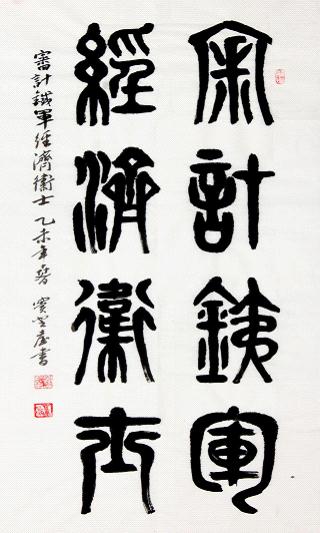 宷計銕軍
經濟衛士
審計鐵軍經濟衛士 乙未年春 書